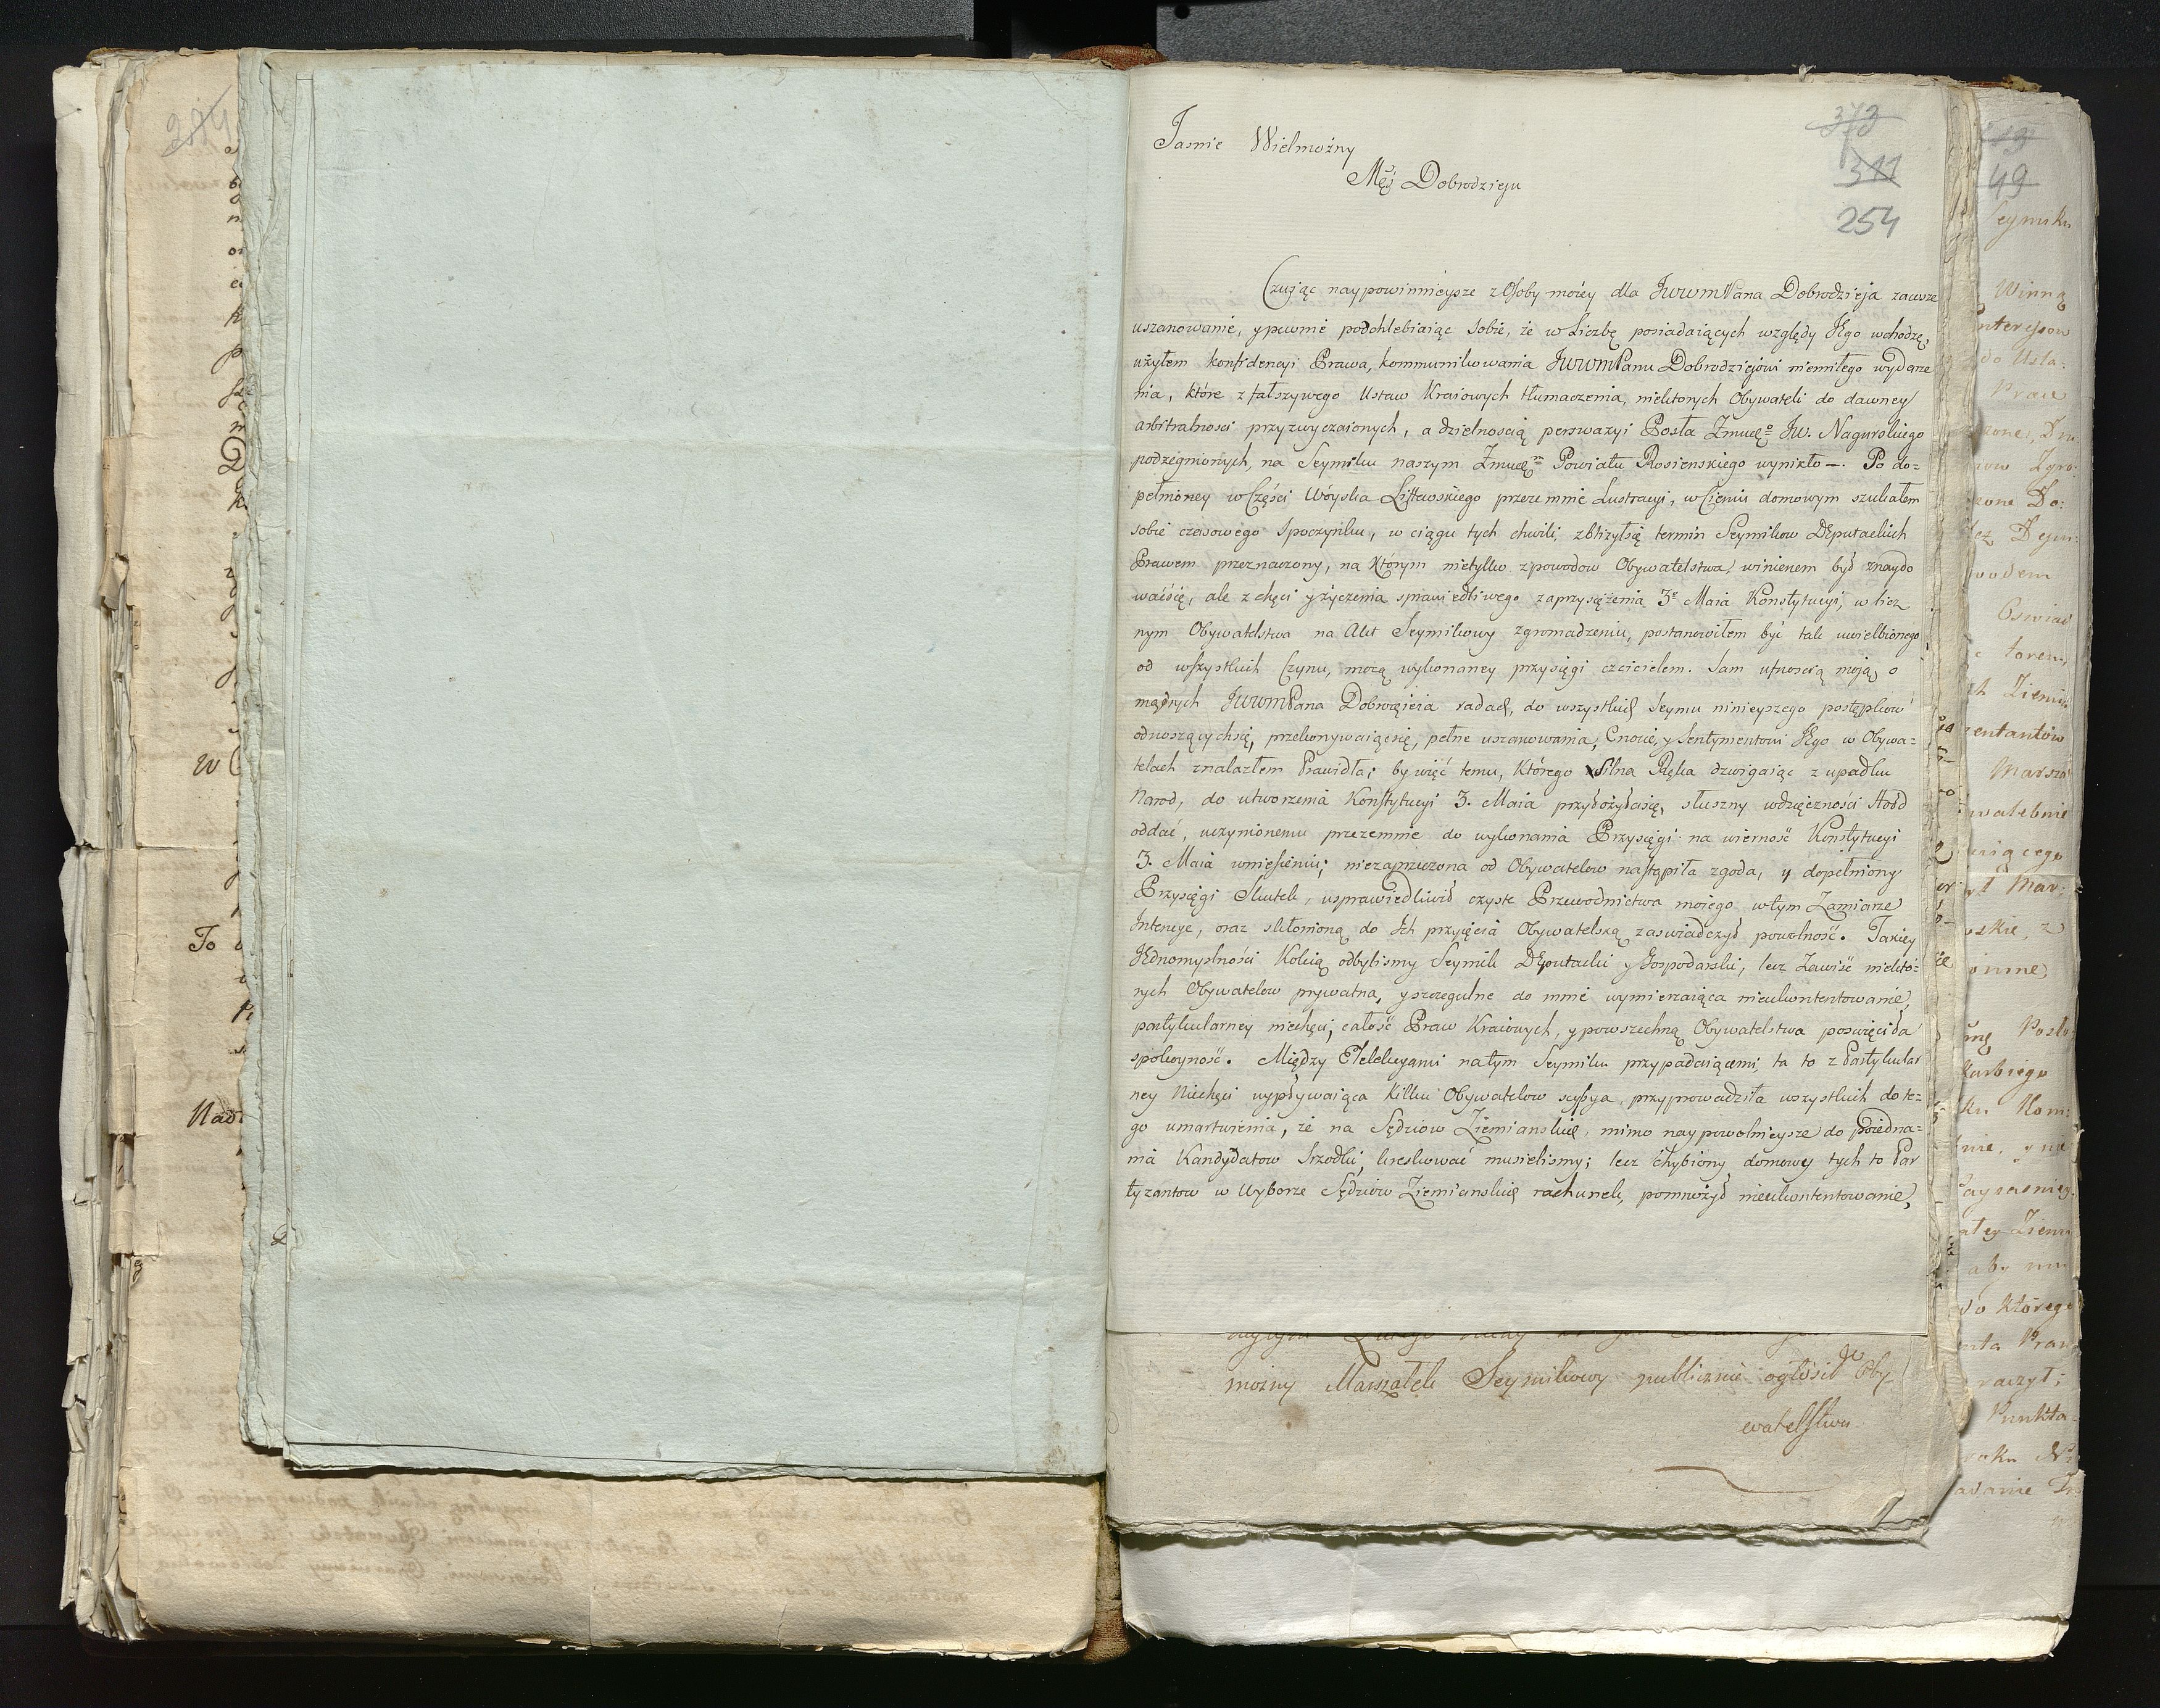 Jasnie Wielmożny
Mści Dobrodzieju
373
311
254
Czując naypowinnieysze z Osoby moiey dla JWWMPana Dobrodzieja zawsze
uszanowanie, y pewnie podchlebiaiąc sobie, że w Liczbę posiadaiących względy JEgo wchodzę,
użyłem konfidencyi Prawa, kommunikowania JWWMPanu Dobrodziejowi niemiłego wydarze
nia, które z fałszywego Ustaw Kraiowych tłumaczenia, niektorych Obywateli do dawney
arbitralności przyzwyczaionych, a dzielnoscią perswazyi Posła Zmudzº JW. Nagurskiego
podżegnionych, na Seymiku naszym Zmudzm Powiatu Rosienskiego wynikło —. Po do=
pełnioney w Części Wóyska Littewskiego przezemnie Lustracyi, w Cieniu domowym szukałem
sobie czasowego spoczynku, w ciągu tych chwili, zbliżyłsię termin Seymikow DEputackich
Prawem przeznaczony, na którym nietylko z powodow Obywatelstwa winienem był znaydo
waćsię, ale z chęci y życzenia sprawiedliwego zaprzysiężenia 3º Maia Konstytucyi, w licz
nym Obywatelstwa na Akt Seymikowy zgromadzeniu, postanowiłem być tak uwielbionego
od wszystkich Czynu, mocą wykonaney przysięgi czcicielem. Sam ufnoscią moją o
mądrych JWWMPana Dobrodzieia radach, do wszystkich Seymu ninieyszego postępkow
odnoszących się, przekonywaiącsię, pełne uszanowania, Cnocie, y Sentymentowi JEgo w Obywa=
telach znalazłem Prawidła; by więc temu, którego silna Ręka dzwigaiąc z upadku
Narod, do utworzenia Konstytucyi 3. Maia przyłożyłasię, słuszny wdzięczności Hołd
oddać, uczynionemu przezemnie do wykonania Przysięgi na wierność Konstytucyi
3. Maia wniesieniu; niezaprzeczona od Obywatelow nastąpiła zgoda, y dopełniony
Przysięgi Skutek, usprawiedliwił czyste Przewodnictwa moiego w tym Zamiarze
Intencye, oraz skłonioną do Ich przyięcia Obywatelską zaswiadczył powolność. Takiey
JEdnomyslności Koleią odbylismy Seymik DEputacki y Gospodarski, lecz Zawiść niektó=
rych Obywatelow prywatna, y szczegulne do mnie wymierzaiąca nieukontentowanie,
partykularney niechęci, całość Praw Kraiowych, y powszechną Obywatelstwa poswięciła
spokoyność. Między Elekcyami na tym Seymiku przypadaiącemi, ta to z Partykular
ney Niechęci wypływaiąca kilku Obywatelow scysya, przyprowadziła wszystkich do te=
go umartwienia, że na Sędziow Ziemianskich, mimo naypowolnieysze do poiedna=
nia Kandydatow Srzodki, kreskować musielismy; lecz chybiony domowey tych to Par
tyzantow w Wyborze Sędziow Ziemianskich rachunek, pomnożył nieukontentowanie,
możny Marszałek Seymikowy publicznie ogłosił Oby
watelstwu
49
Seymiku
Winną
Prace
wodem
Oswiad
Marsza
walebnie
Posło
karbiego
aby
do którego
raczył;
Punkta
To